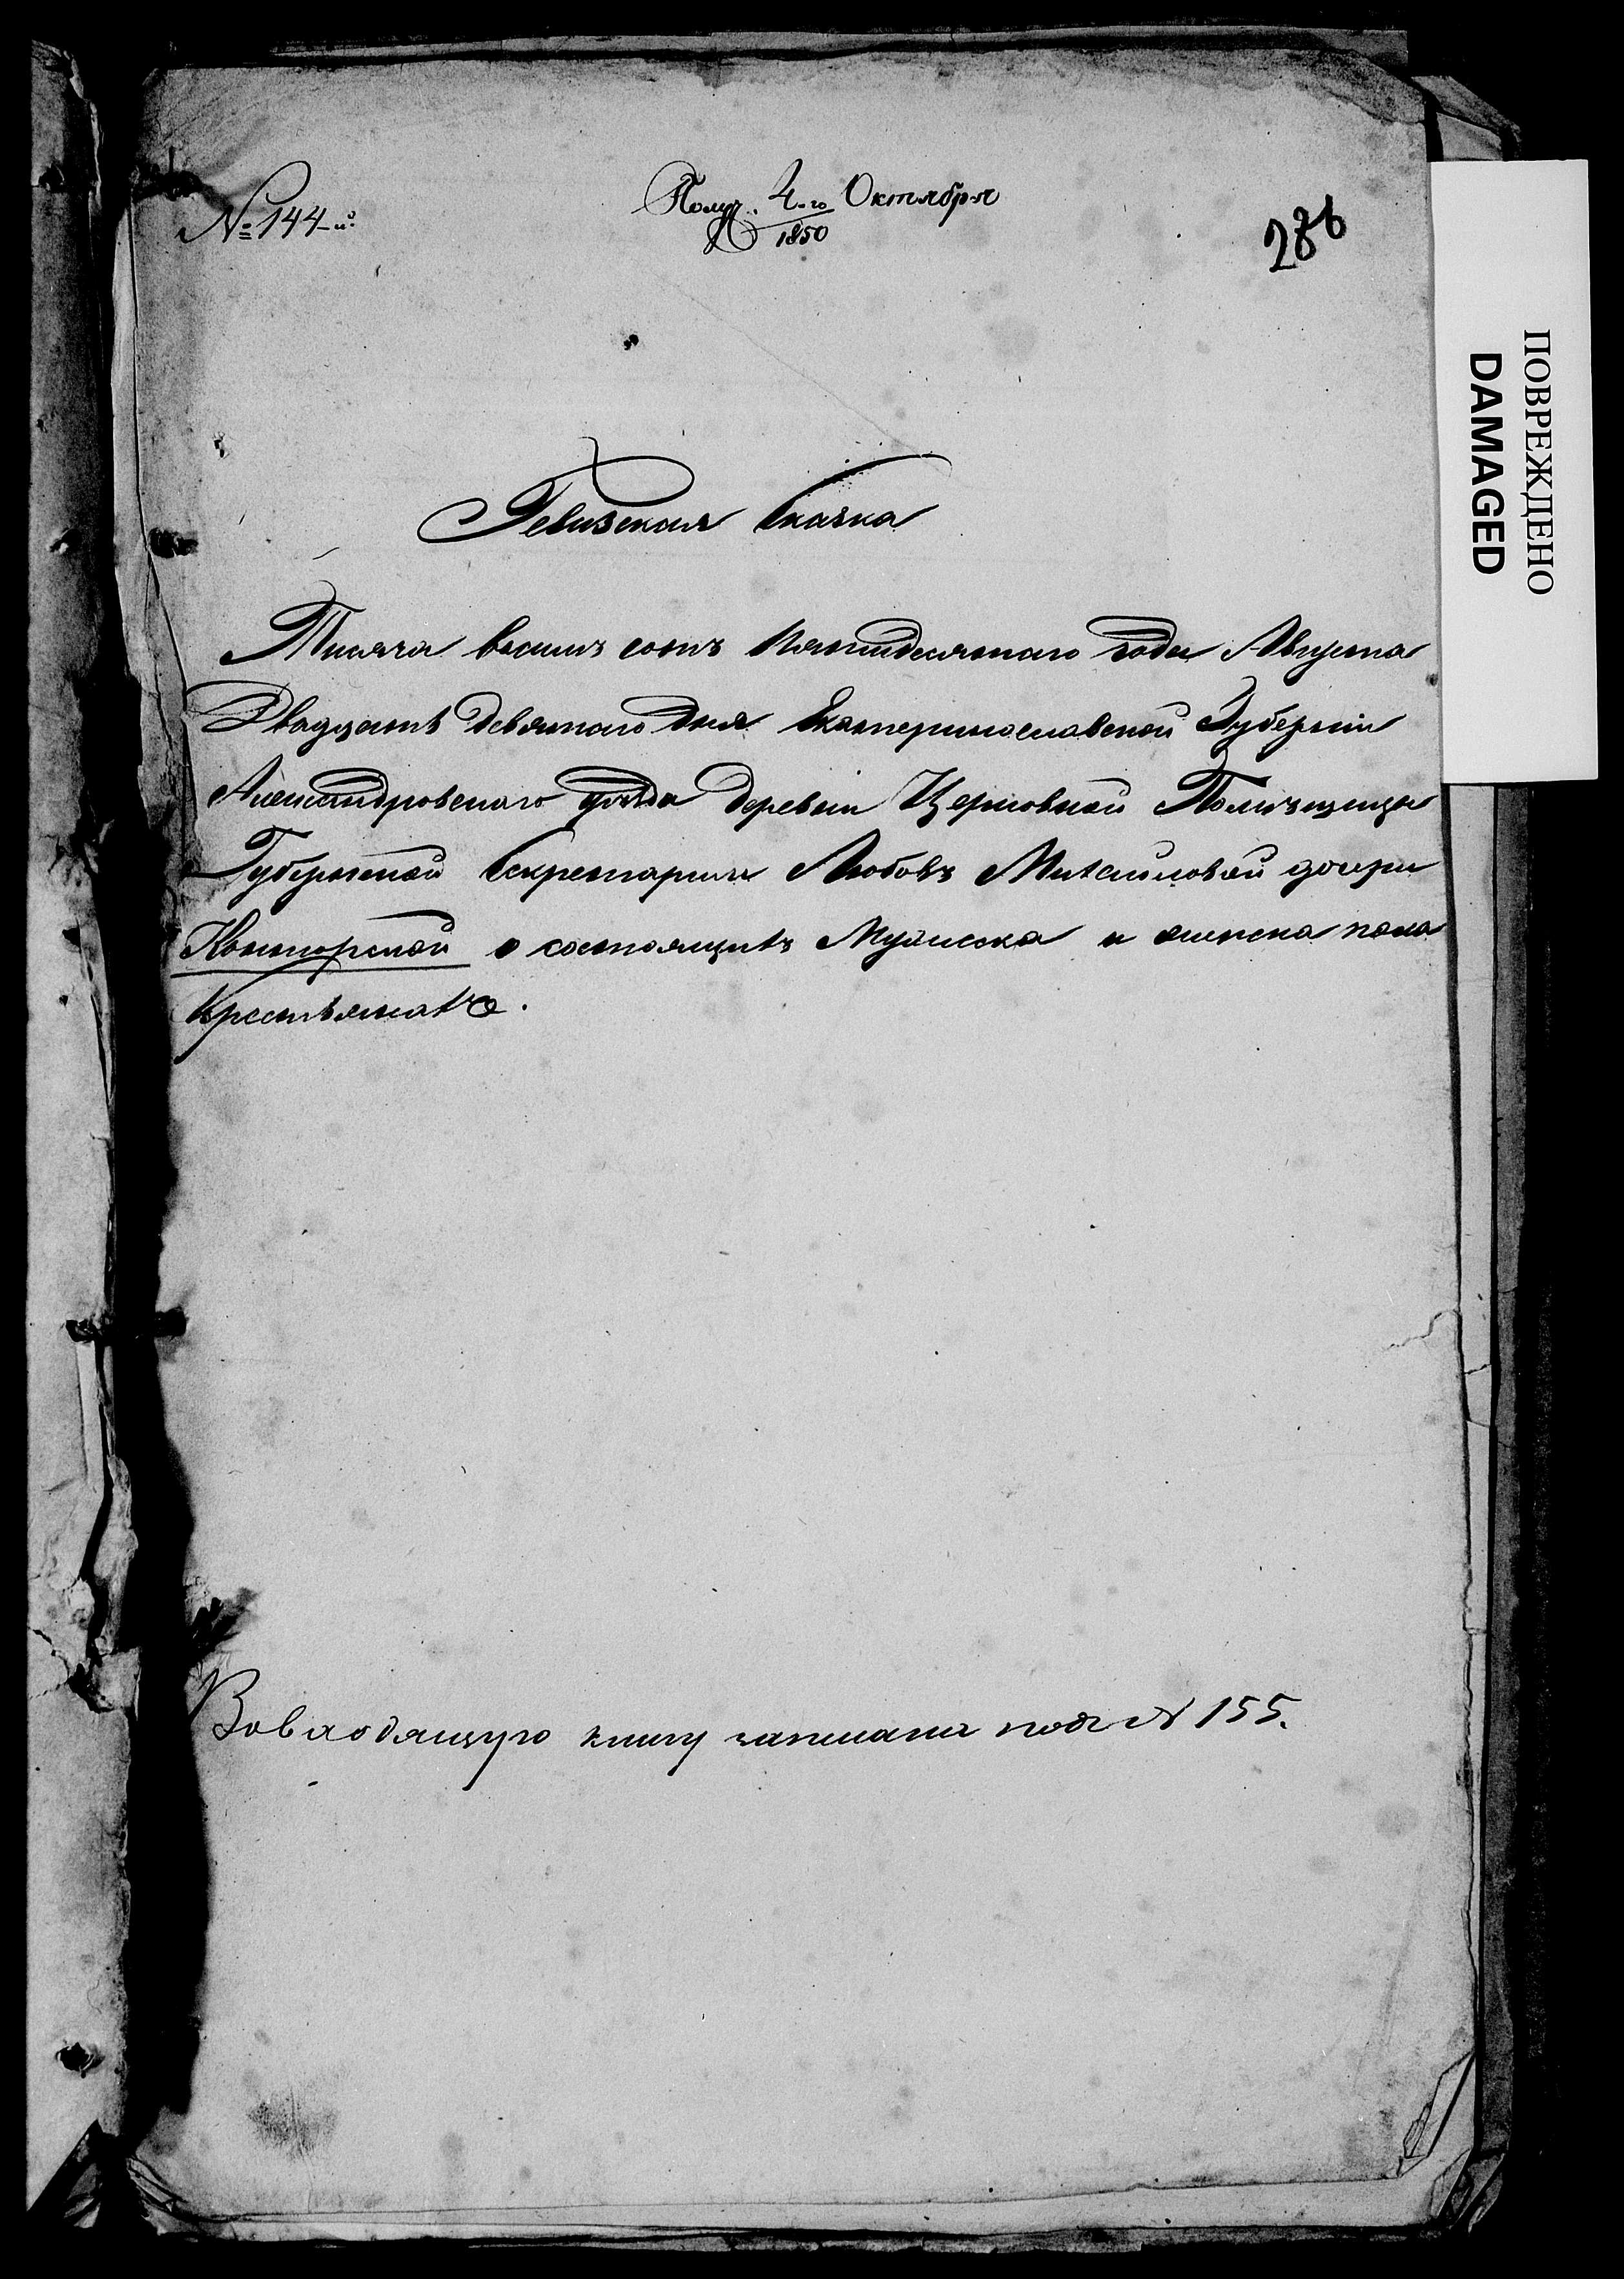 № 144-й
Получ. 4-го Октября
1850
286
Ревизская Сказка
Тысяча восемь сотъ пятидесятаго года Августа
Двадцать девятаго дня Екатеринославской Губерніи
Александровскаго уѣзда деревни Церковной Помѣщицы
Губернской Секретарши Любовь Михайловой дочери
о состоящихъ Мужеска и женска пола
Крестьянахъ.
Вовходящую книгу записана подъ № 155.
ПОВРЕЖДЕНО
DAMAGED